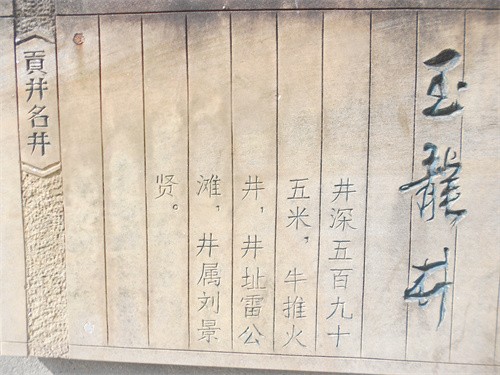 玉龍井
井深五百九十
五米，牛推火
井，井址雷公
滩，井属刘景
贤。
貢井名井